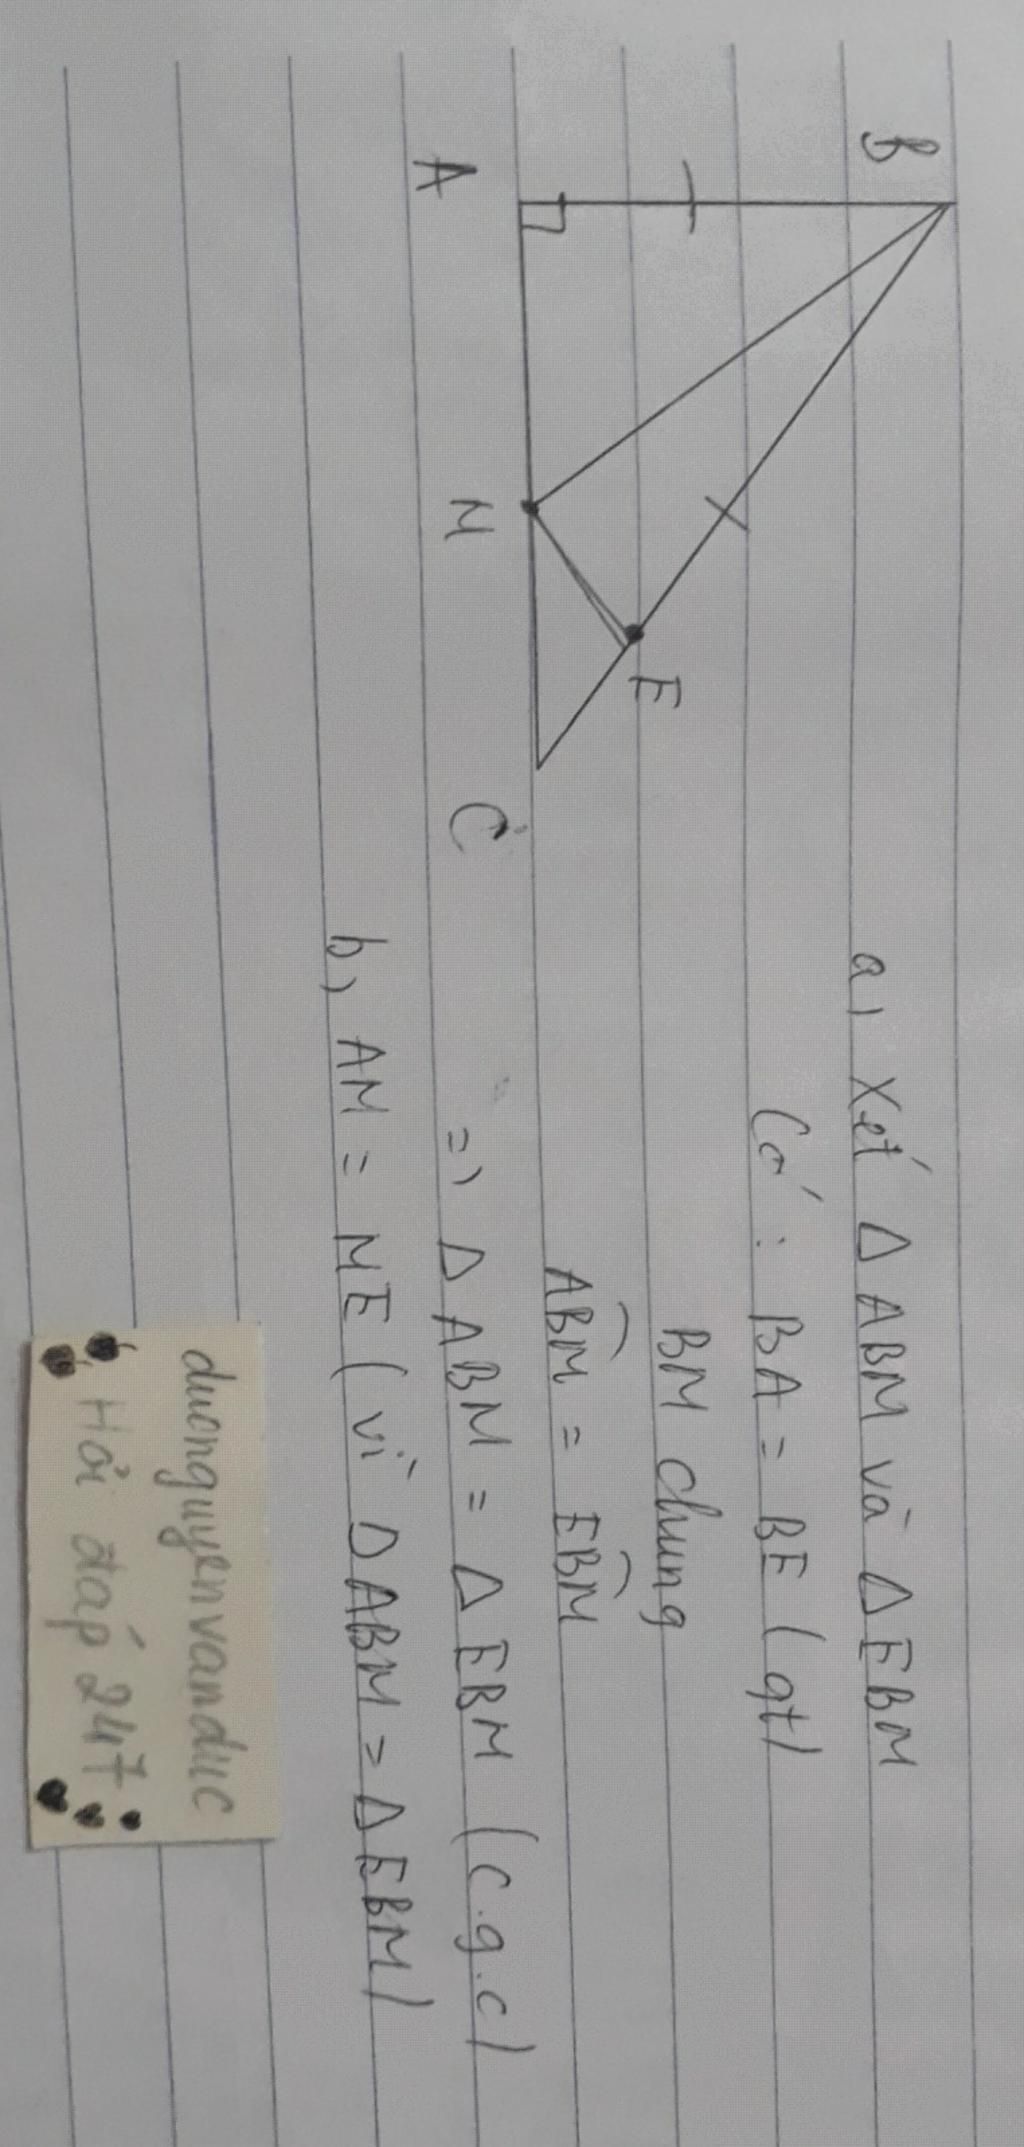 B
A
M
E
C
a, Xét Δ ABM và Δ EBM
Có : BA = BE (gt)
BM chung
ABM = EBM
=) Δ ABM = Δ EBM (c.g.c)
b, AM = ME (vì Δ ABM = Δ EBM)
duonguyenvanduc
Hỏi đáp 247